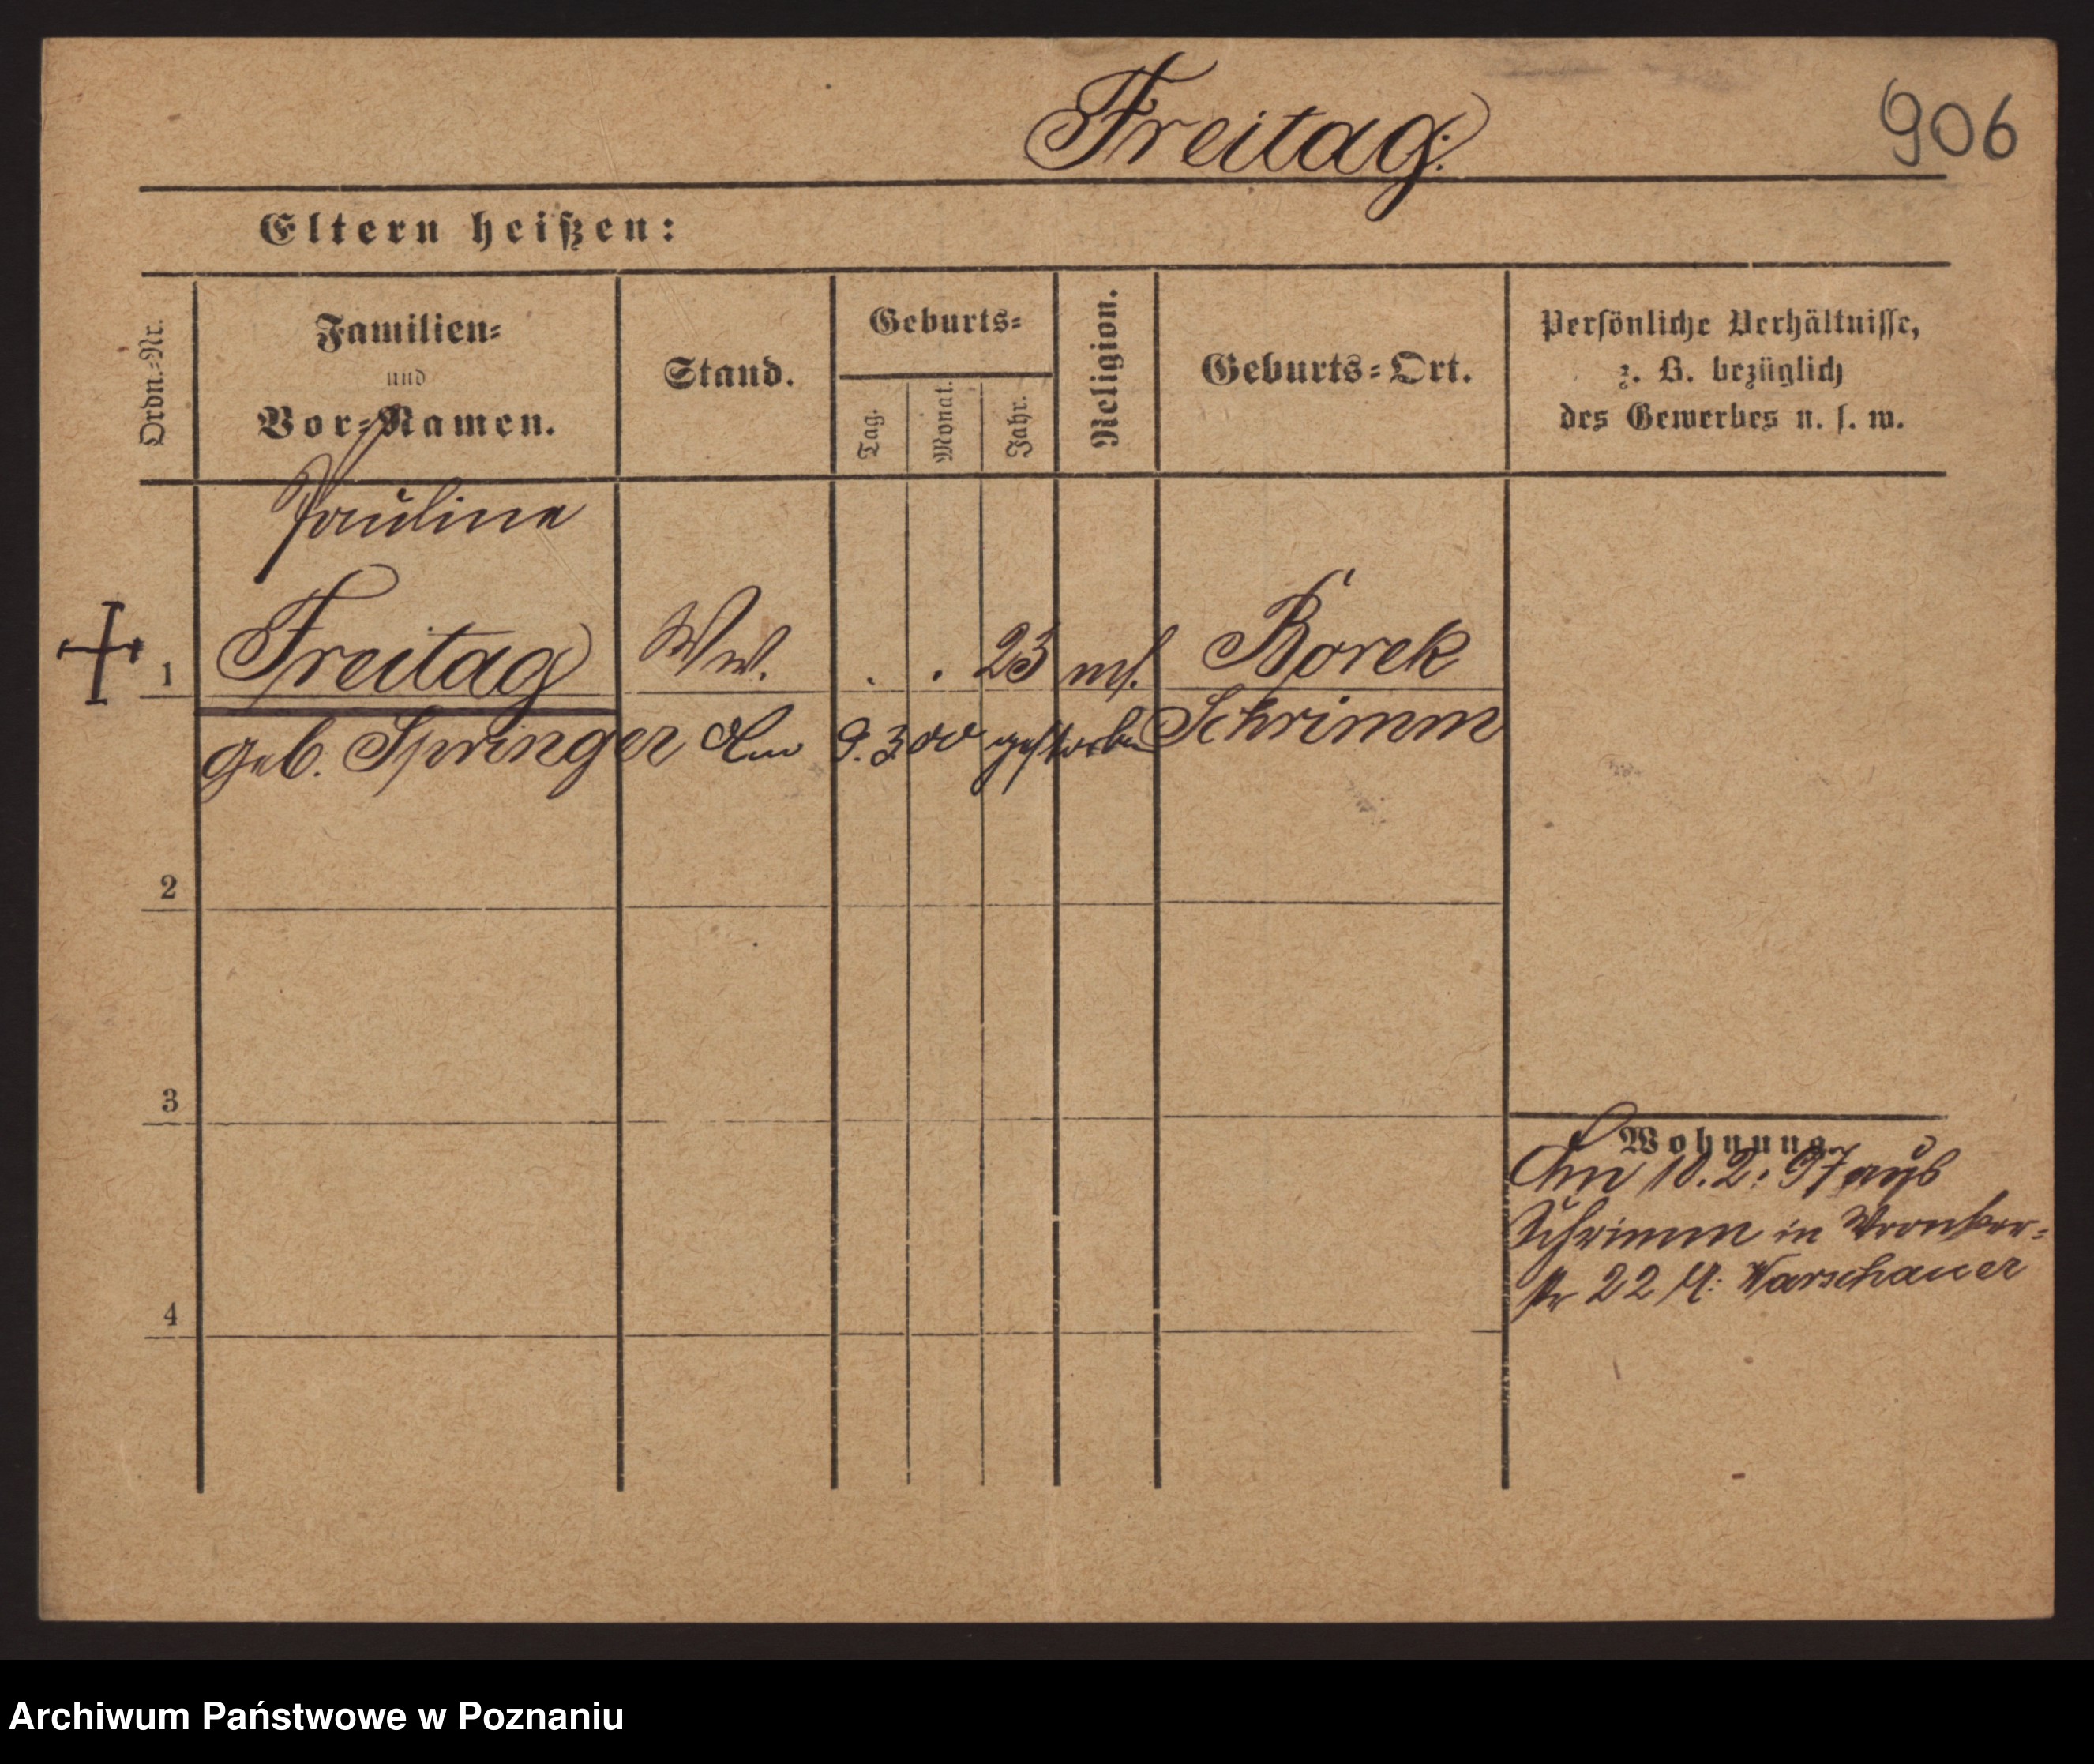 Freitag.
906
Eltern heißen:
Ordn.-Nr.
Familien-
und
Vor-Namen.
Stand.
Geburts-
Tag.
Monat.
Jahr.
Religion.
Geburts-Ort.
Persönliche Verhältnisse,
z. B. bezüglich
des Gewerbes u. s. w.
Pauline
1 Freitag Ww. . . 23 mos. Borek
geb. Springer Am 9.3.00 gestorben Schrimm
2
3
4
Wohnung.
Am 10.2.97 aus
Schrimm in Wronker-
str 22 Warschauer
Archiwum Państwowe w Poznaniu